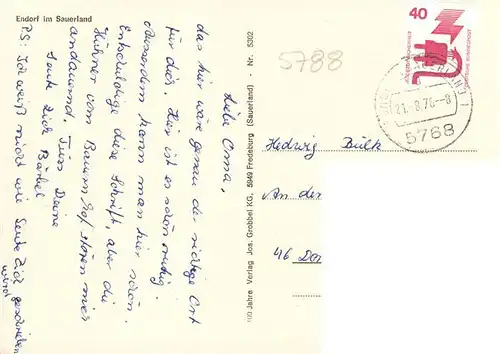 Endorf im Sauerland
Liebe Oma,
das hier wäre genau der richtige Ort
für dich. Hier ist es schön ruhig.
Ausserdem kann man hier schön
Entschuldige diese Schrift, aber die
Hühner vom Bauern Hof stören mich
andauernd. Tüss Deine
Seute Dich Bärbel
PS: Ich weiß nicht wie Seute Dich geschrieben
wird
100 Jahre Verlag Jos. Grobbel KG, 5949 Fredeburg (Sauerland) - Nr. 5302
5788
40
DEUTSCHE BUNDESPOST
21.-8.76.-8
5768
Hedwig Bulk
An der
46 Do